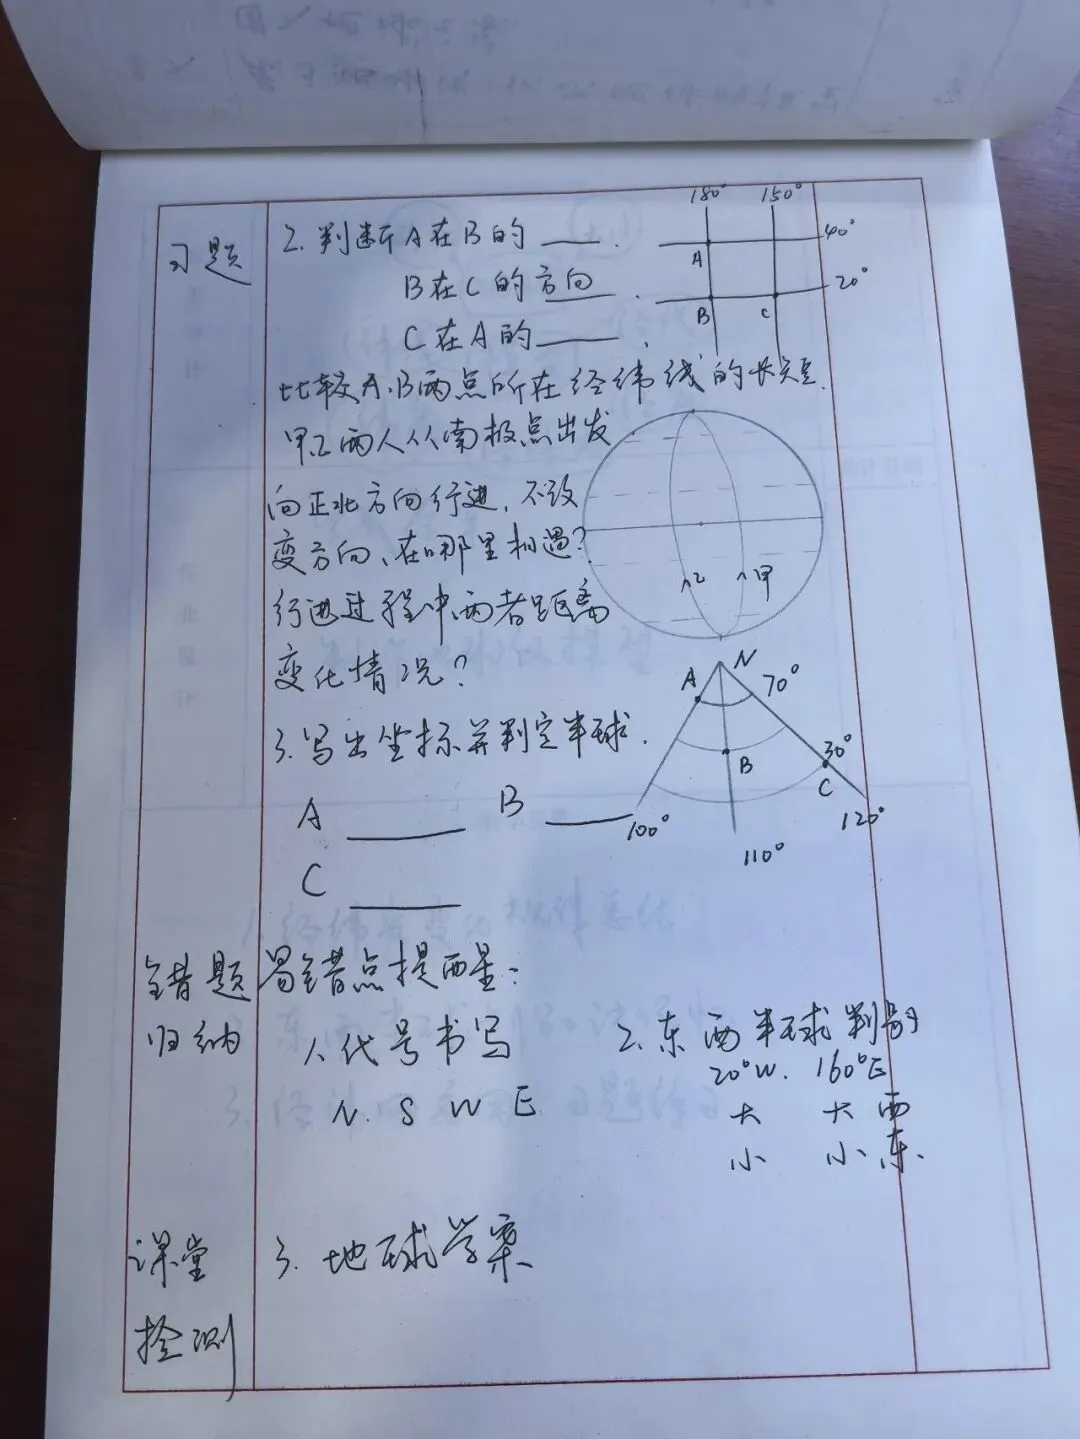 习题
2. 判断A在B的____.
B在C的方向____.
C在A的____.
180° 150°
40°
20°
A
B C
比较A、B两点所在经纬线的长短.
甲乙两人从南极点出发
向正北方向行进, 不改
变方向、在哪里相遇?
行进过程中两者距离
变化情况?
乙 甲
3. 写出坐标并判定半球.
A ____ B ____
C ____
N
A 70°
B 30°
C
100° 120°
110°
错题
归纳
易错点提醒:
1. 代号书写
N. S W E
2. 东西半球判别
20°W. 160°E
大 大 西
小 小 东.
课堂
检测
3. 地球学案